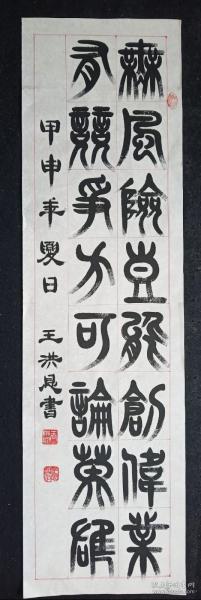 無風險豈能創偉業
有競爭方可論英雄
甲申年夏日 王洪恩書